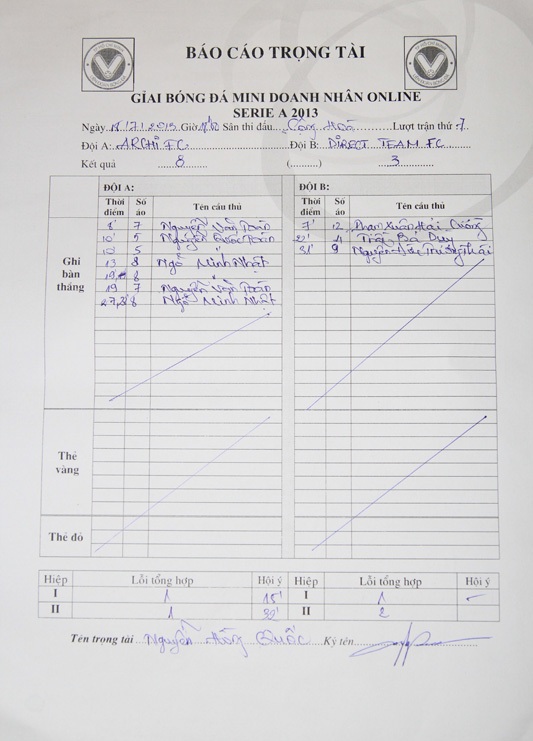 BÁO CÁO TRỌNG TÀI
GIẢI BÓNG ĐÁ MINI DOANH NHÂN ONLINE
SERIE A 2013
Ngày Giờ Sân thi đấu Cộng Hoà Lượt trận thứ 7
Đội A: ARCHI FC Đội B: DIRECT TEAM FC
Kết quả 8 (..........) 3
ĐỘI A: ĐỘI B:
Thời điểm Số áo Tên cầu thủ Thời điểm Số áo Tên cầu thủ
Ghi bàn thắng
8' 7 Nguyễn Văn Toàn 7' 12 Phan Xuân Hải
10' 5 Nguyễn Quốc Toàn 22' 4 Trần Bá Duy
12' 5 31' 9 Nguyễn
13 8 Ngô Minh Nhật
19 8
19 7 Nguyễn Văn Toàn
8 Ngô Minh Nhật
Thẻ vàng
Thẻ đỏ
Hiệp Lỗi tổng hợp Hội ý Hiệp Lỗi tổng hợp Hội ý
I 1 15' I 1
II 1 22' II 2
Tên trọng tài Nguyễn Hồng Quốc Ký tên